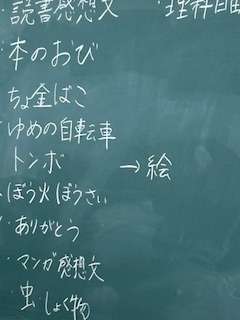 ・読書感想文
・理科自由
・本のおび
ちょ金ばこ
ゆめの自転車
トンボ
→絵
・ぼう火ぼうさい
・ありがとう
・マンガ感想文
・虫・しょく物